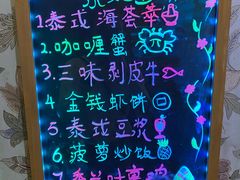 1.泰式海荟萃
2.咖喱蟹
3.三味剥皮牛
4 金钱虾饼
5 泰式豆浆
6.菠萝炒饭